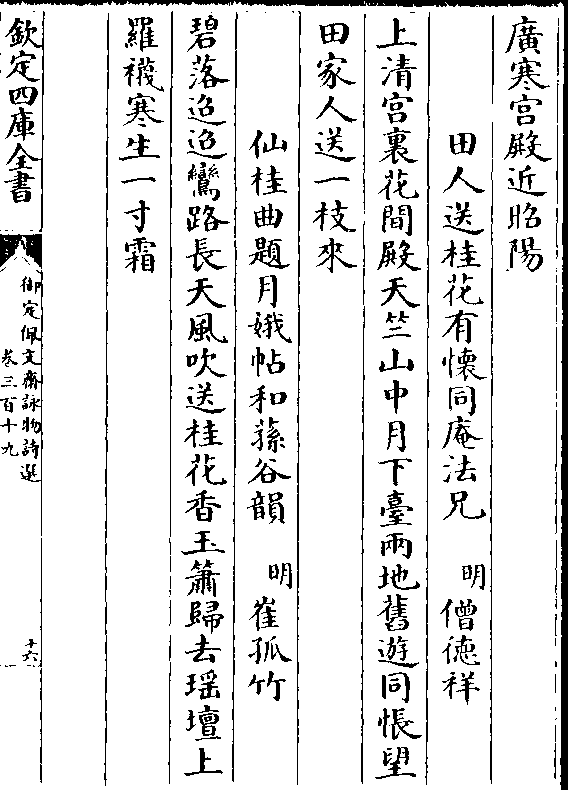 廣寒宫殿近昭陽
田人送桂花有懷同庵法兄 明 僧徳祥
上清宫裏花間殿天竺山中月下臺兩地舊遊同悵望
田家人送一枝來
仙桂曲題月娥帖和蓀谷韻 明 崔孤竹
碧落迢迢鸞路長天風吹送桂花香玉簫歸去瑶壇上
羅襪寒生一寸霜
欽定四庫全書
御定佩文齋詠物詩選
卷三百十九
十六